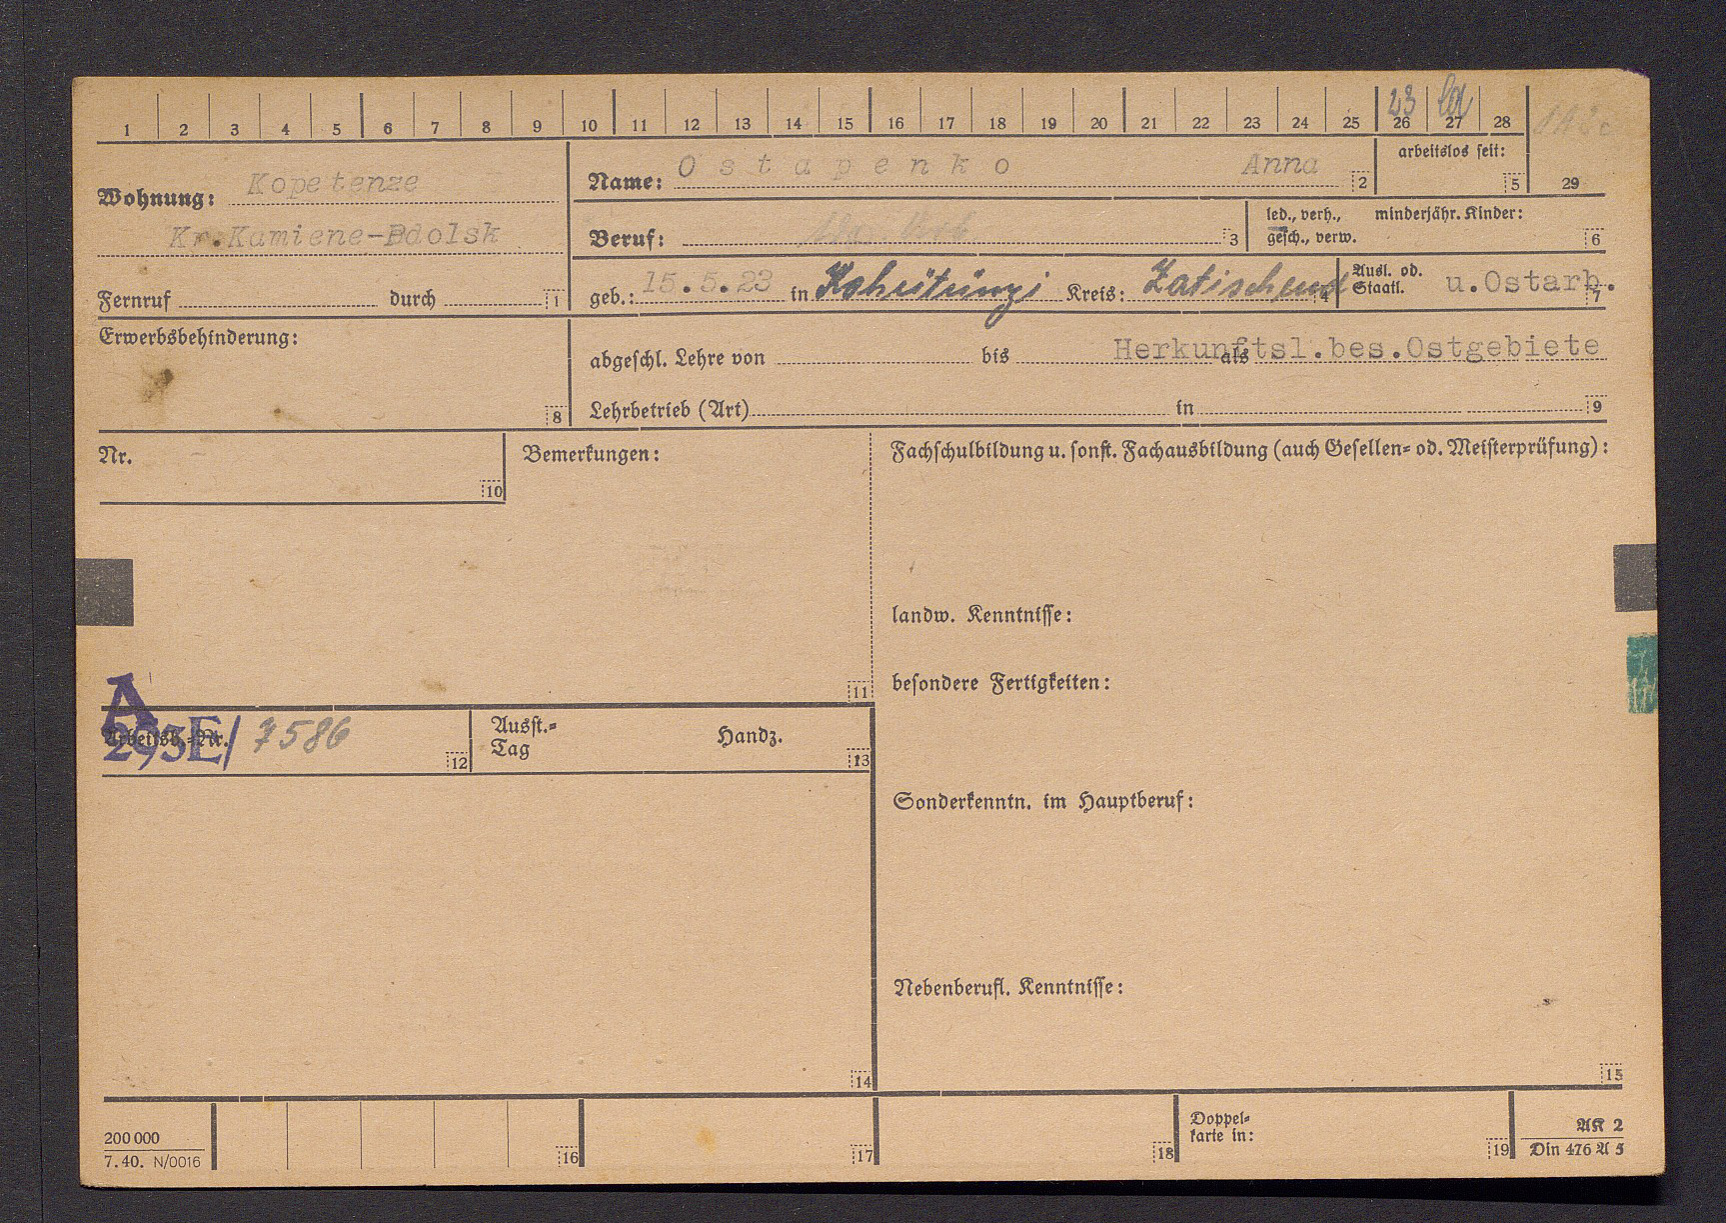 1 2 3 4 5 6 7 8 9 10 11 12 13 14 15 16 17 18 19 20 21 22 23 24 25 26 27 28 29
23
Wohnung: Kopetenze
Kr.Kamiene-Bdolsk
Fernruf durch 1
Name: Ostapenko Anna 2
arbeitslos seit: 5
Beruf: 3
led., verh., gesch., verw. minderjähr. Kinder: 6
geb.: 15.5.23 in Kreis: 4
Ausl. od. Staatl. u.Ostarb. 7
Erwerbsbehinderung: 8
abgeschl. Lehre von bis als Herkunftsl.bes.Ostgebiete
Lehrbetrieb (Art) in 9
Nr. 10
Bemerkungen: 11
Fachschulbildung u. sonst. Fachausbildung (auch Gesellen- od. Meisterprüfung):
landw. Kenntnisse:
besondere Fertigkeiten:
A
Arbeitsb.-Nr. 293E/ 7586 12
Ausst.-Tag Handz. 13
Sonderkenntn. im Hauptberuf:
Nebenberufl. Kenntnisse:
14
15
200 000
7. 40. N/0016
16 17 18
Doppel-
karte in: 19
AK 2
Din 476 A 5